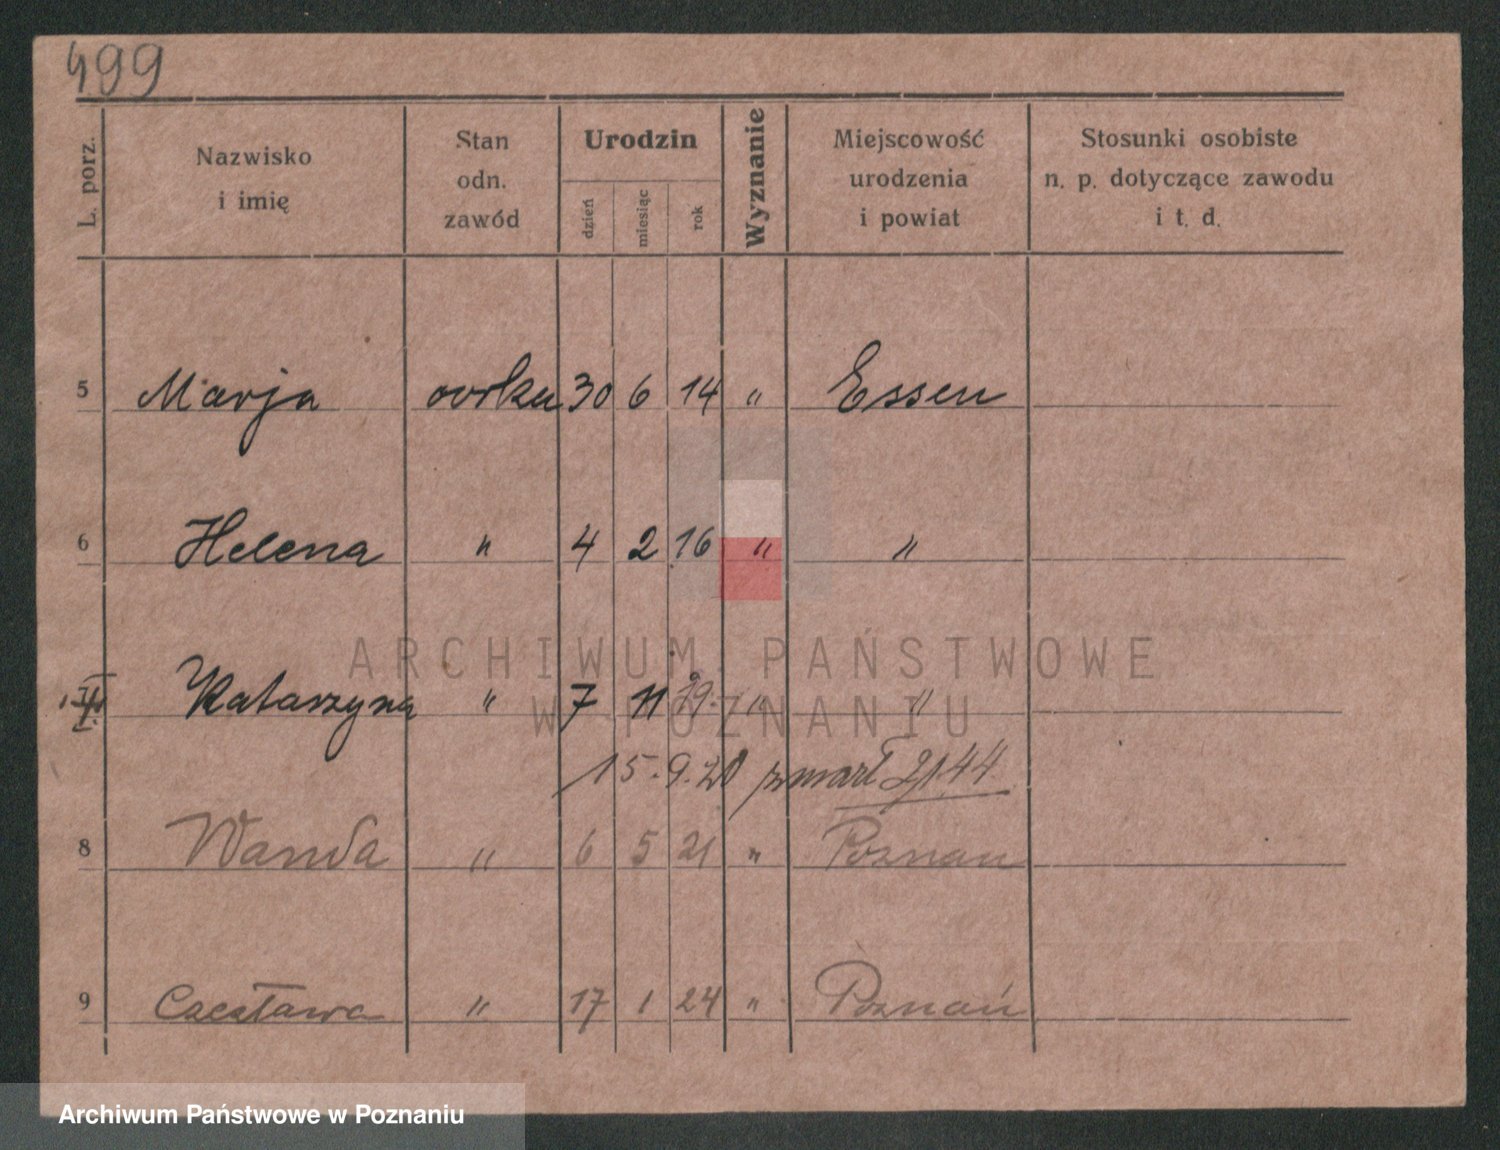 499
L. porz.
Nazwisko
i imię
Stan
odn.
zawód
Urodzin
dzień
miesiąc
rok
Wyznanie
Miejscowość
urodzenia
i powiat
Stosunki osobiste
n. p. dotyczące zawodu
i t. d.
5 Marja 30 6 14 " Essen
6 Helena " 4 2 16 " "
Katarzyna " 7 11 " "
15.9.20 zmarł
8 Wanda " 6 5 21 " Poznan
9 Czesława " 17 1 24 " Poznań
ARCHIWUM PAŃSTWOWE
W POZNANIU
Archiwum Państwowe w Poznaniu